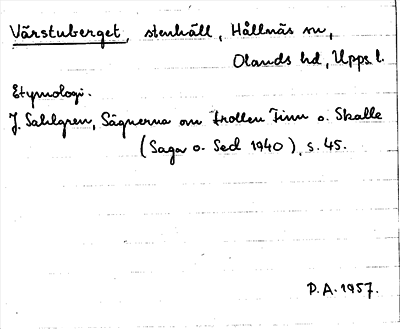 Värstuberget, stenhäll, Hållnäs sn,
Olands hd, Upps. l.
Etymologi.
J. Sahlgren, Sägnerna om trollen Finn o. Skalle
(Saga o. Sed 1940), s. 45.
P.A. 1957.